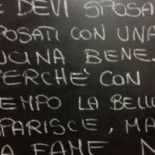 DEVI SPOSA
POSATI CON UNA
UCINA BENE.
PERCHÈ CON
EMPO LA BELLE
PARISCE, MA
A FAME N